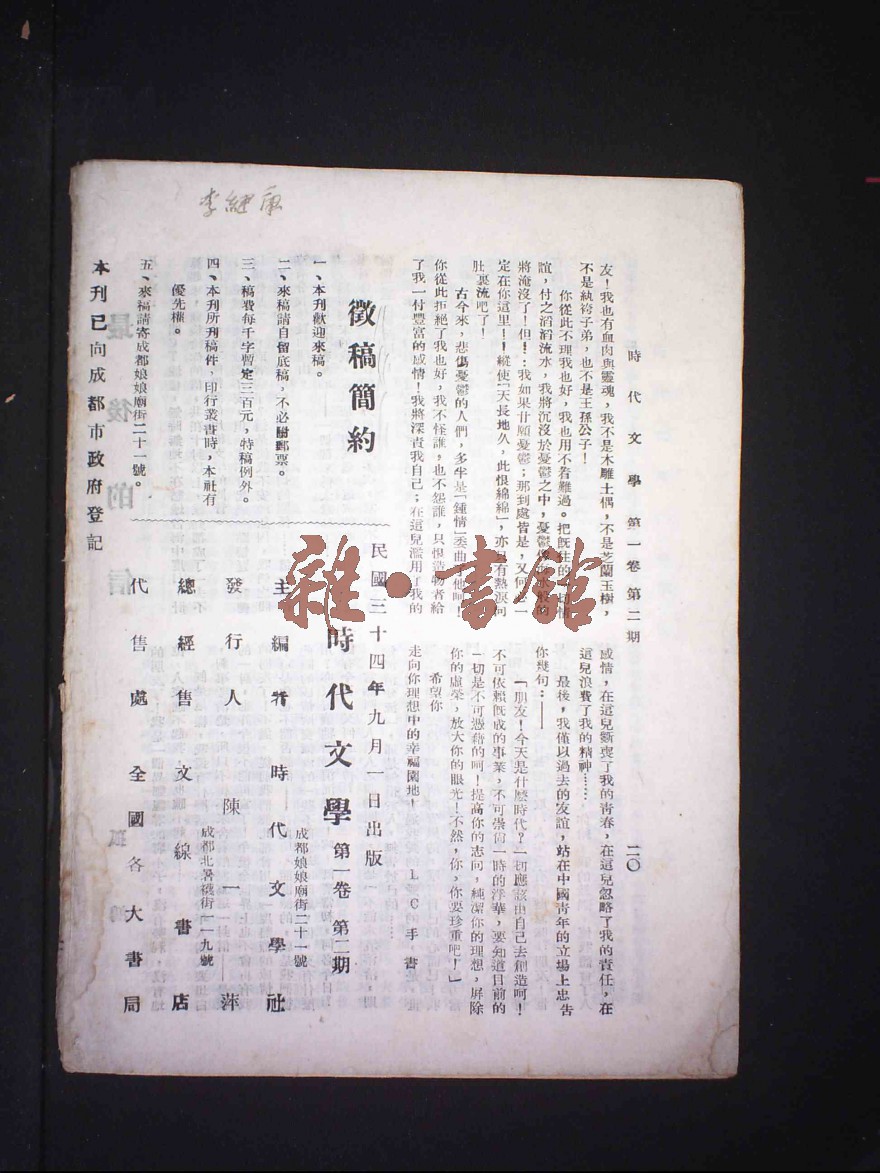 李繼康
時代文學 第一卷 第二期
二〇
友！我也有血肉與靈魂，我不是木雕土偶，不是芝蘭玉樹，
不是紈袴子弟，也不是王孫公子！
你從此不理我也好，我也用不着難過。把既往的一切情
誼，付之滔滔流水，我將沉沒於憂鬱之中，憂鬱
將淹沒了！但！：我如果甘願憂鬱；那到處皆是，又何
定在你這里！！縱使「天長地久，此恨綿綿」，亦只有熱淚向
肚裏流吧了！
古今來，悲傷憂鬱的人們，多半是「鍾情」委曲了他呵！
你從此拒絕了我也好，我不怪誰，也不怨誰，只恨造物者給
了我一付豐富的感情！我將深責我自己；在這兒濫用了我的
感情，在這兒斵喪了我的青春，在這兒忽略了我的責任，在
這兒浪費了我的精神……
最後，我僅以過去的友誼，站在中國青年的立場上忠告
你幾句：——
「朋友！今天是什麽時代？一切應該由自己去創造呵！
不可依賴既成的事業，不可崇尚一時的浮華，要知道目前的
一切是不可憑藉的呵！提高你的志向，純潔你的理想，屏除
你的虛榮，放大你的眼光！不然，你，你要珍重吧！」
希望你
走向你理想中的幸福園地！
LC手書
徵稿簡約
一、本刊歡迎來稿。
二、來稿請自留底稿，不必附郵票。
三、稿費每千字暫定三百元，特稿例外。
四、本刊所刊稿件，印行叢書時，本社有
優先權。
五、來稿請寄成都娘娘廟街二十一號。
本刊已向成都市政府登記
民國三十四年九月一日出版
時代文學 第一卷 第二期
成都娘娘廟街二十一號
主編者 時代文學社
發行人 陳一萍
成都北暑襪街一一九號
總經售 文線書店
代售處 全國各大書局
雜·書館